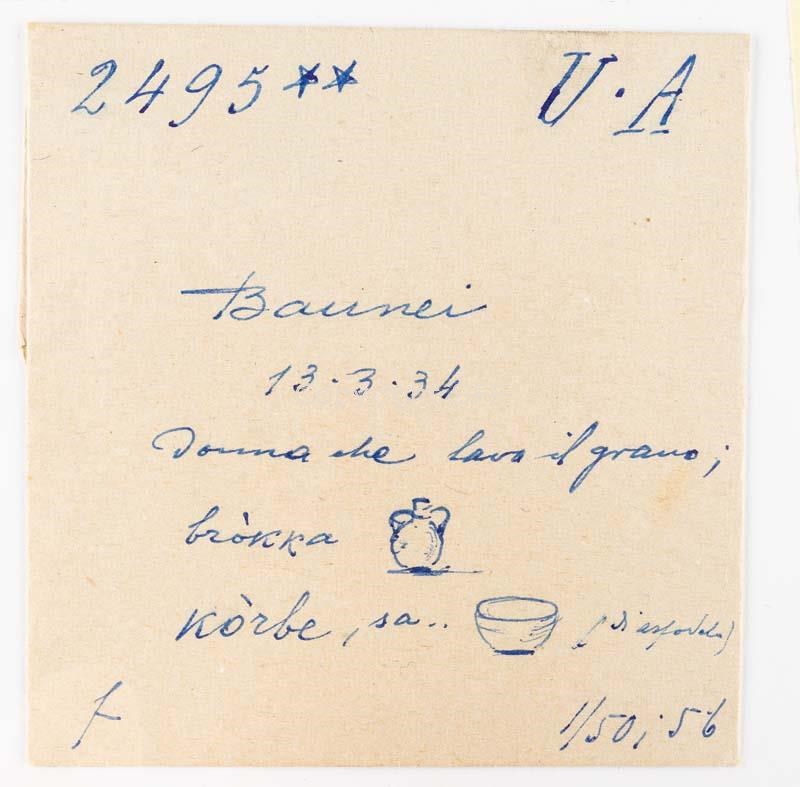 2495** U·A
Baunei
13·3·34
Donna che lava il grano;
bròkka
kòrbe, sa.. (di asfodelo)
f 1/50; 5·6